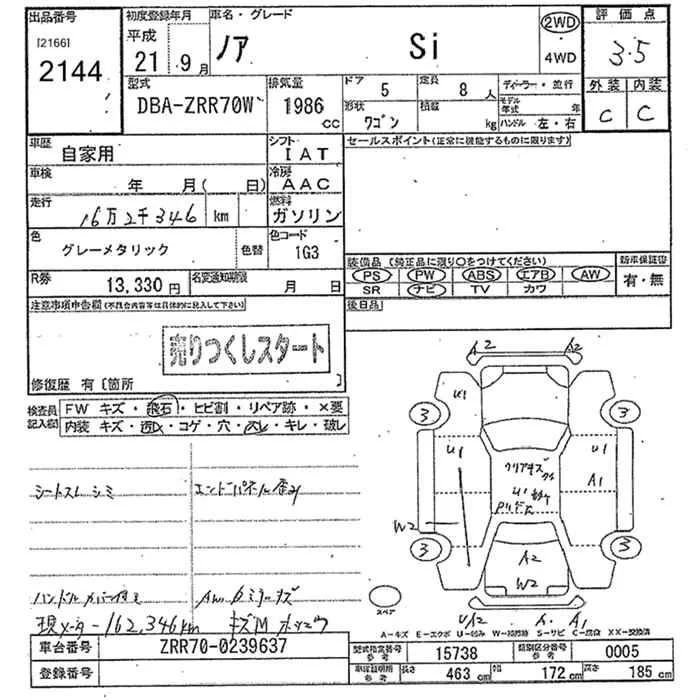 出品番号 初度登録年月 車名・グレード 2WD 評価点
[21661]
2144
平成
21 9月
ノア Si
4WD
3.5
型式 排気量 ドア 定員 ディーラー・並行 外装 内装
DBA-ZRR70W 1986 cc
5 8人
モデル年式 年
形状 ワゴン 積載 kg
ハンドル 左・右
C C
車歴 自家用
シフト IAT
セールスポイント(正常に機能するものに限ります)
車検 年 月( 日)
冷房 AAC
走行 16万2千346 km
燃料 ガソリン
色 グレーメタリック 色替
色コード 1G3
装備品(純正品に限り○をつけてください) 新車保証書
PS PW ABS エアB AW
SR ナビ TV カワ
有・無
R券 13,330円
名変通知期限 月 日
後日品
注意事項申告欄(不具合内容等は具体的に記入して下さい)
売りつくしスタート
修復歴 有[箇所 ]
検査員記入欄
FW キズ・飛石・ヒビ割・リペア跡・×要
内装 キズ・コゲ・穴・スレ・キレ・破レ
シートスレ シミ
エンドパネル歪み
ハンドルカバー付き
現メーター162,346km
A2 A2
U1
3 3
U1 U1 A1
クリアキズ
W2
3 3
A2
W2
UA2 A. A1
スペア
A-キズ E-エクボ U-凹み W-補修跡 S-サビ C-腐食 XX-交換済
車台番号 ZRR70-0239637
型式指定番号 参考 15738
類別区分番号 参考 0005
登録番号
車検証明用 参考 長さ 463cm 幅 172cm 高さ 185cm